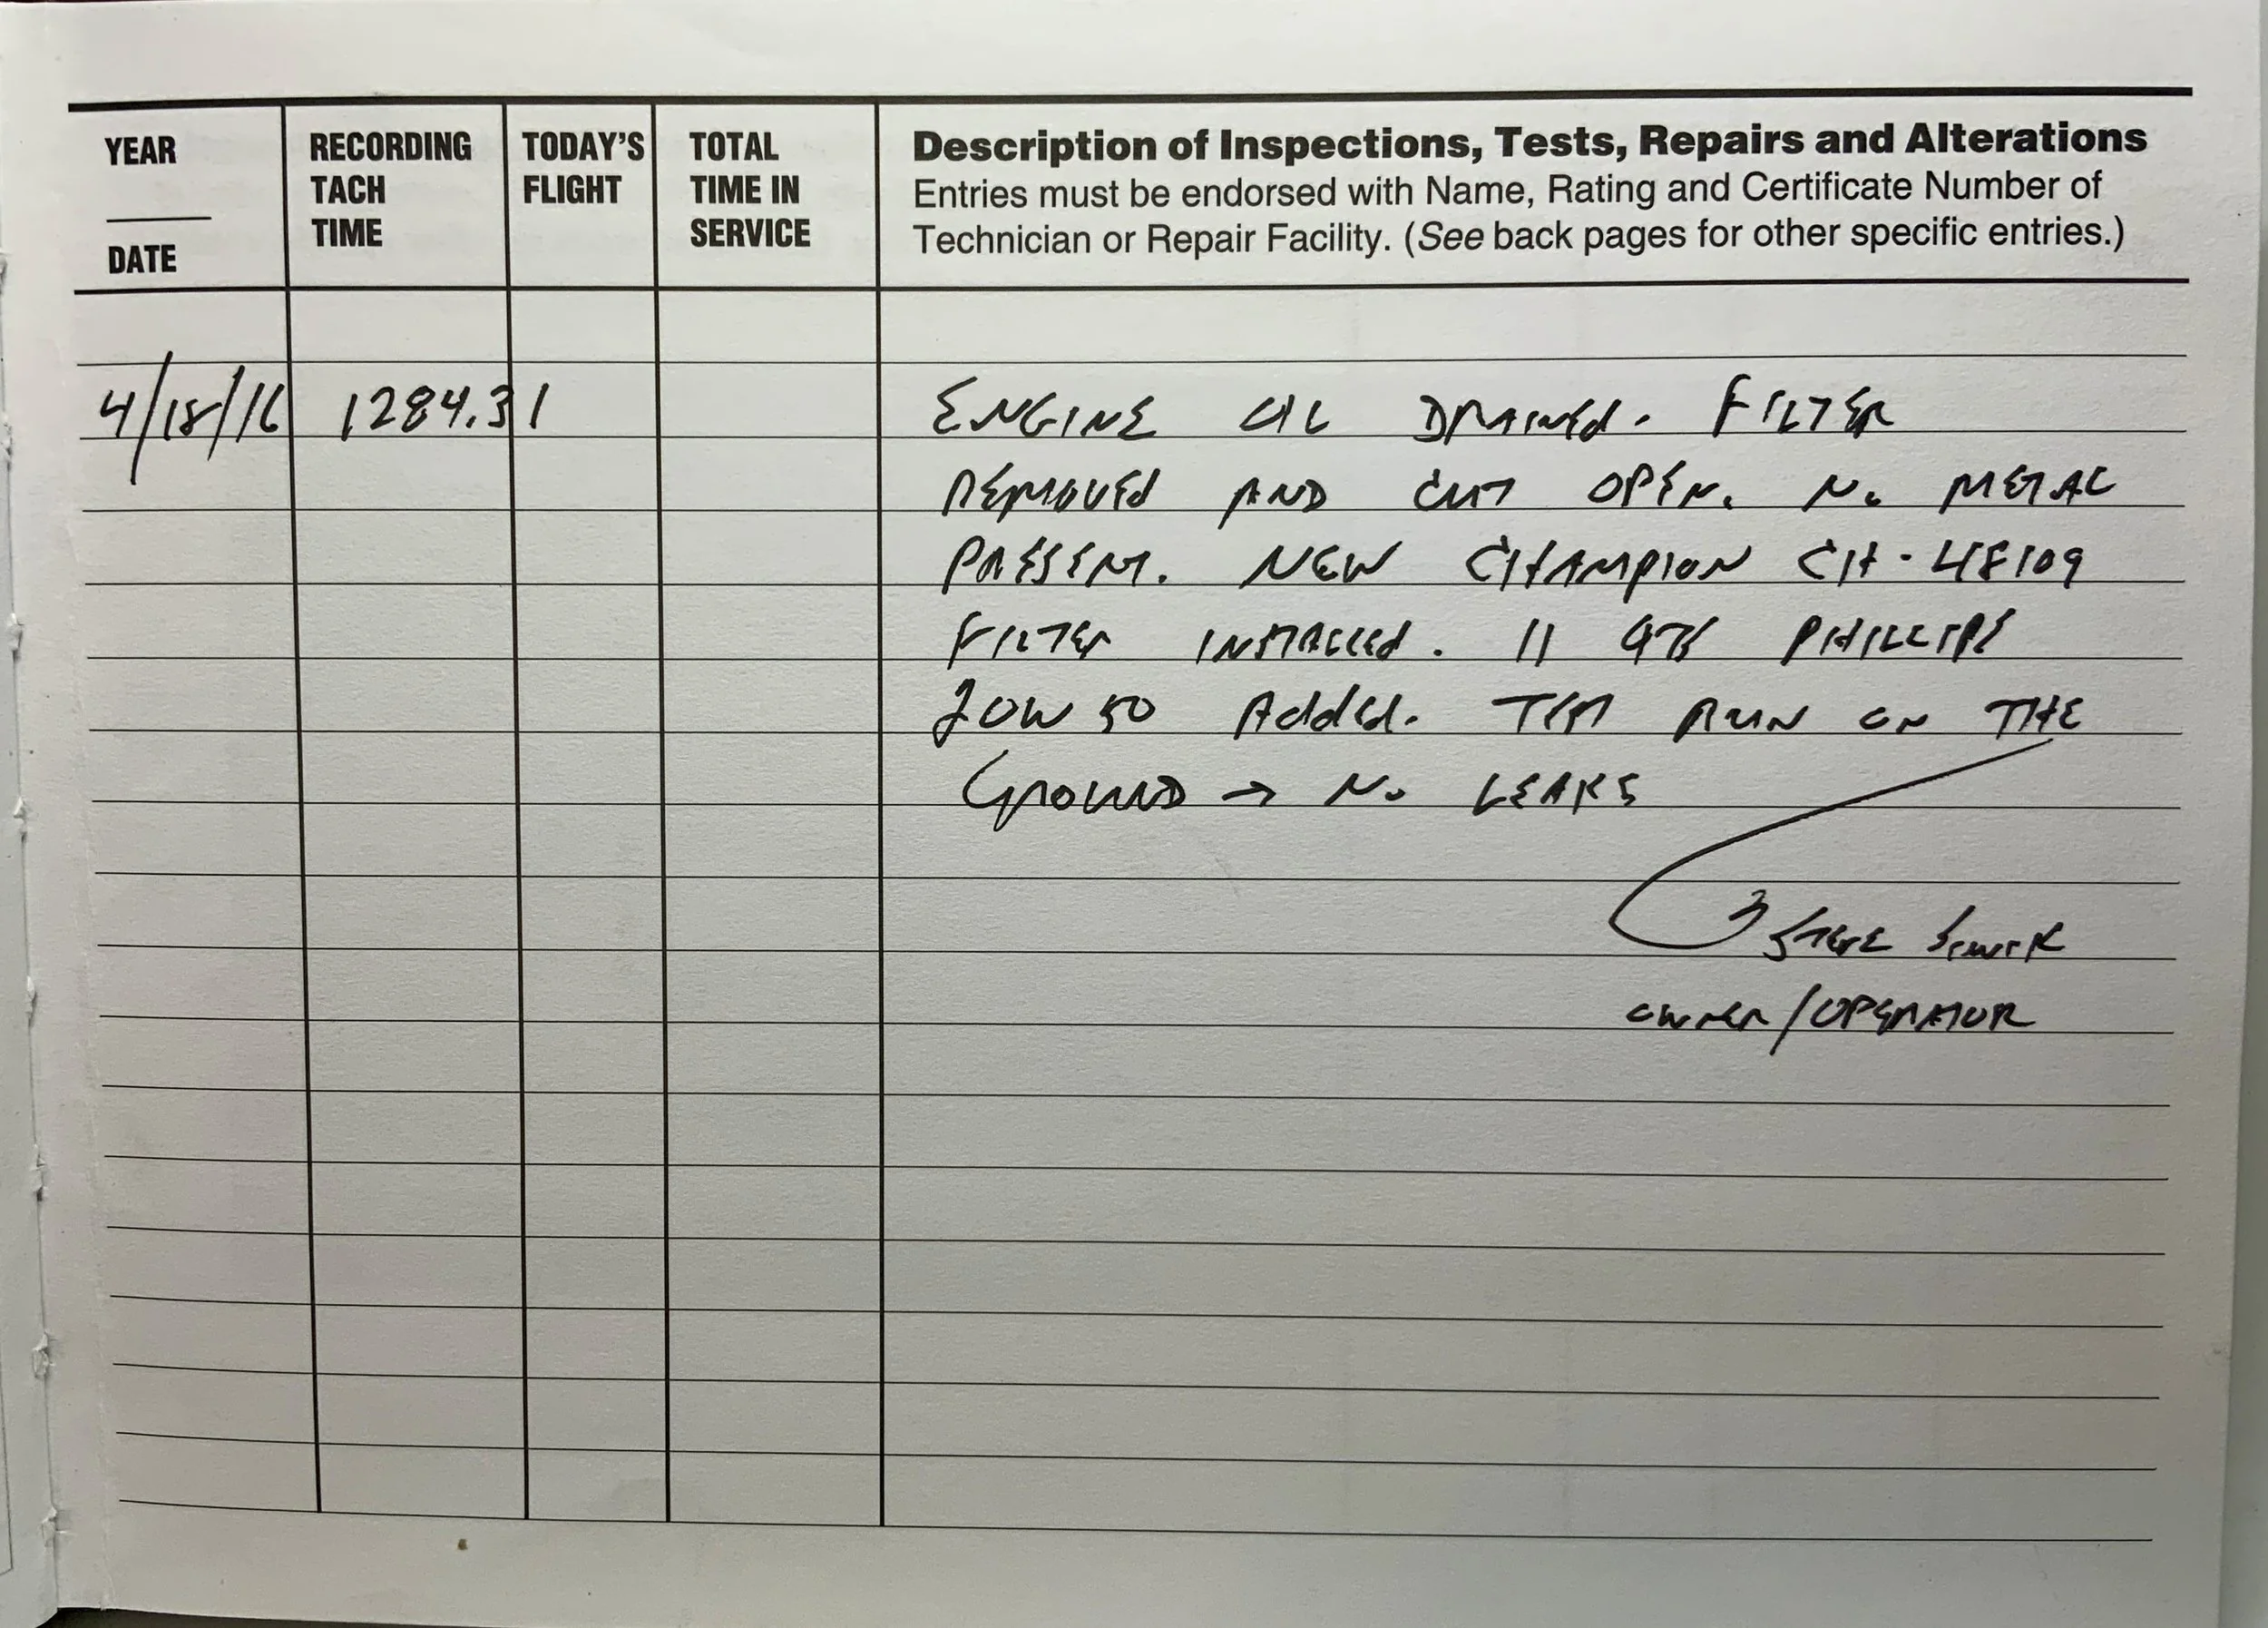 YEAR
DATE
RECORDING
TACH
TIME
TODAY'S
FLIGHT
TOTAL
TIME IN
SERVICE
Description of Inspections, Tests, Repairs and Alterations
Entries must be endorsed with Name, Rating and Certificate Number of
Technician or Repair Facility. (See back pages for other specific entries.)
4/18/16 1284.31 ENGINE OIL DRAINEd. FILTER
REMOVEd AND CUT OPEN. No METAL
PRESENT. NEW CHAMPION CH-48109
FILTER INSTALLEd. 11 QTS PHILLIPS
20W50 Added. TEST RUN ON THE
GROUND → No LEAKS
STEVE
OWNER/OPERATOR